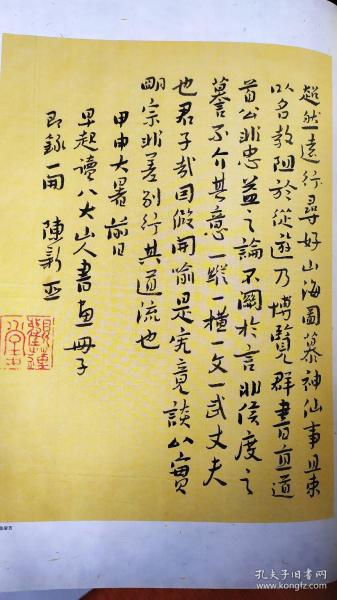 超然一遠行尋好山海圖慕神仙事且束
以名教迴於從遊乃博覽群書百直道
首公非忠益之論不關於言非侯度之
譽不介其意一縱一橫一文一武丈夫
也君子哉因假開喻是究竟談以實
明宗非差別行其道流也
甲申大暑前日
早起讀八大山人書畫冊子
即錄一開 陳新亞
孔夫子旧书网